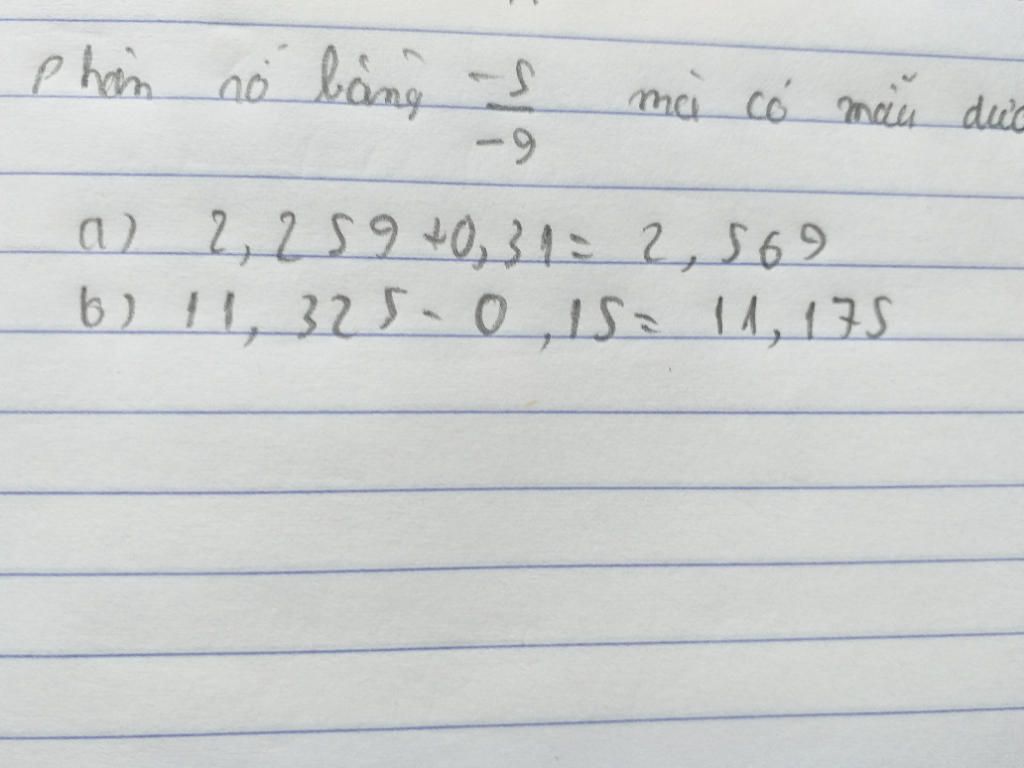 phân số bằng -5/-9 mà có mẫu dươ
a) 2,259+0,31= 2,569
b) 11,325- 0,15= 11,175